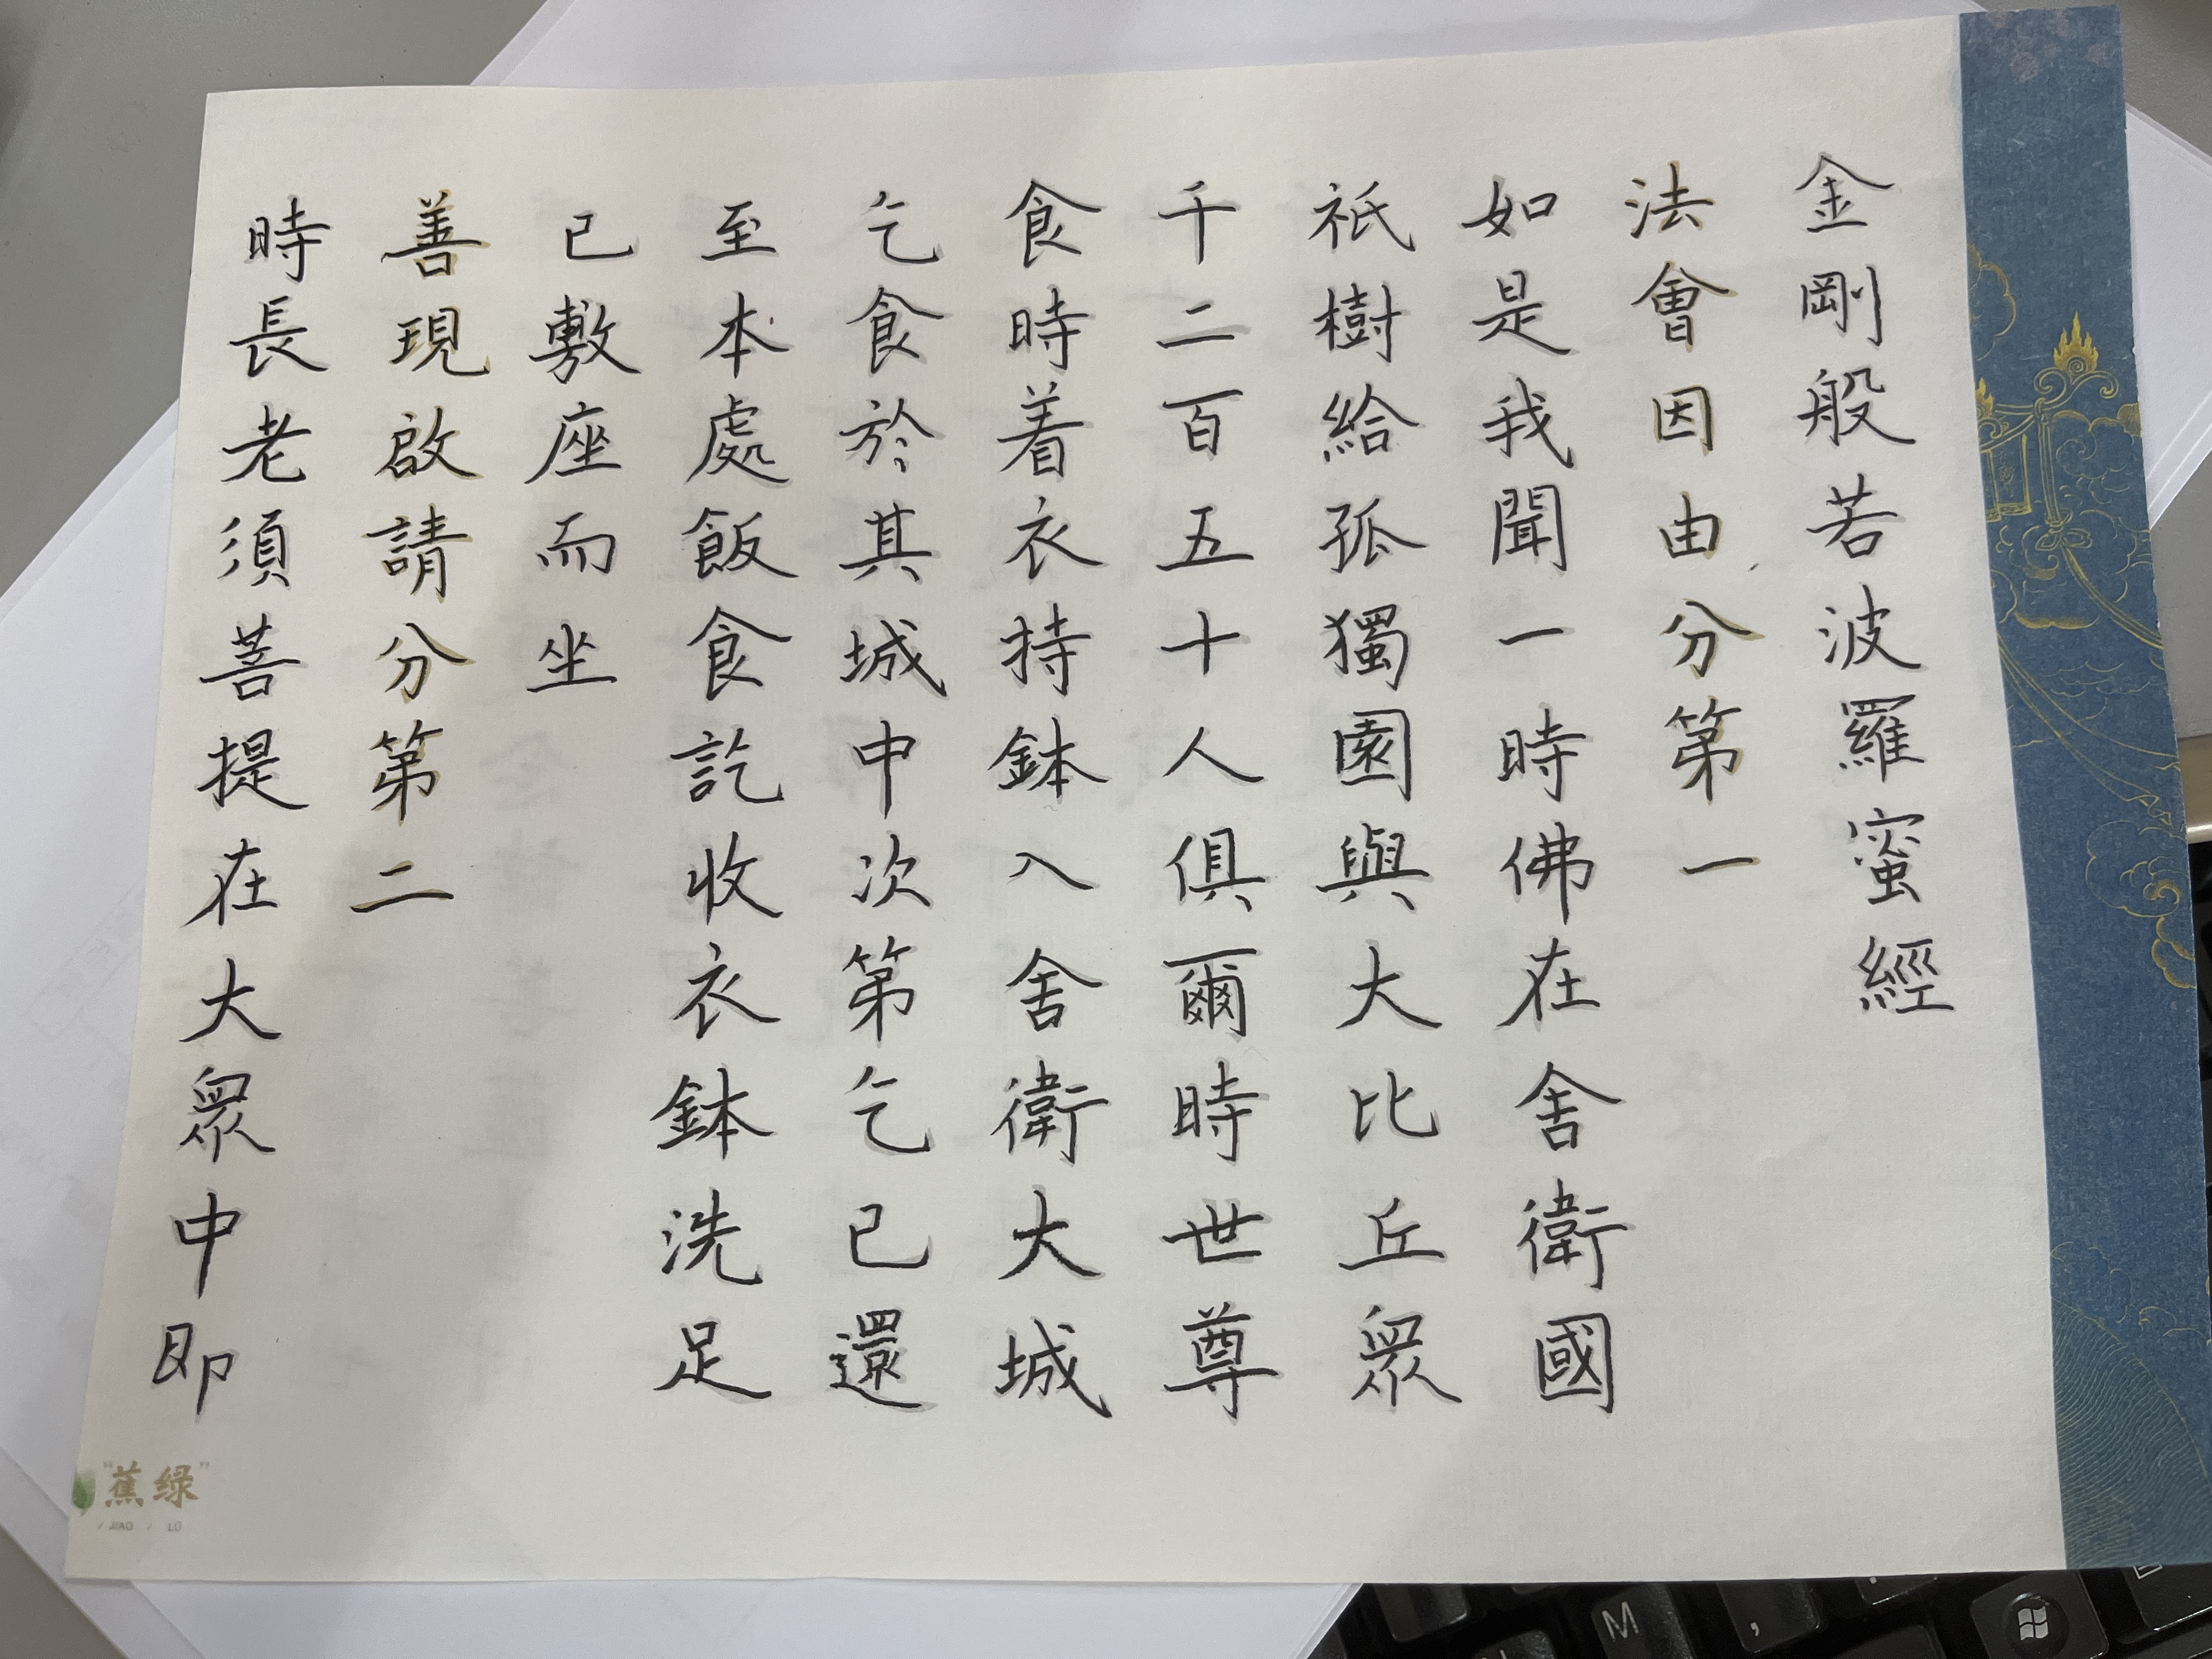 金剛般若波羅蜜經
法會因由分第一
如是我聞一時佛在舍衛國
祇樹給孤獨園與大比丘眾
千二百五十人俱爾時世尊
食時着衣持鉢入舍衛大城
乞食於其城中次第乞已還
至本處飯食訖收衣鉢洗足
已敷座而坐
善現啟請分第二
時長老須菩提在大眾中即
"蕉綠"
/ JIAO / LU